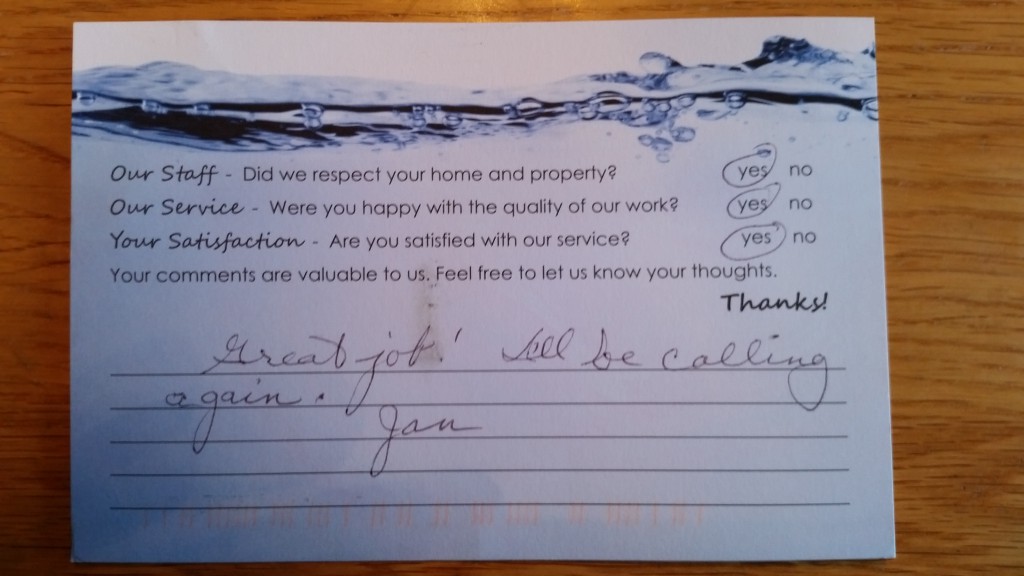 Our Staff - Did we respect your home and property? yes no
Our Service - Were you happy with the quality of our work? yes no
Your Satisfaction - Are you satisfied with our service? yes no
Your comments are valuable to us. Feel free to let us know your thoughts.
Thanks!
Great job! I'll be calling
again.
Jan